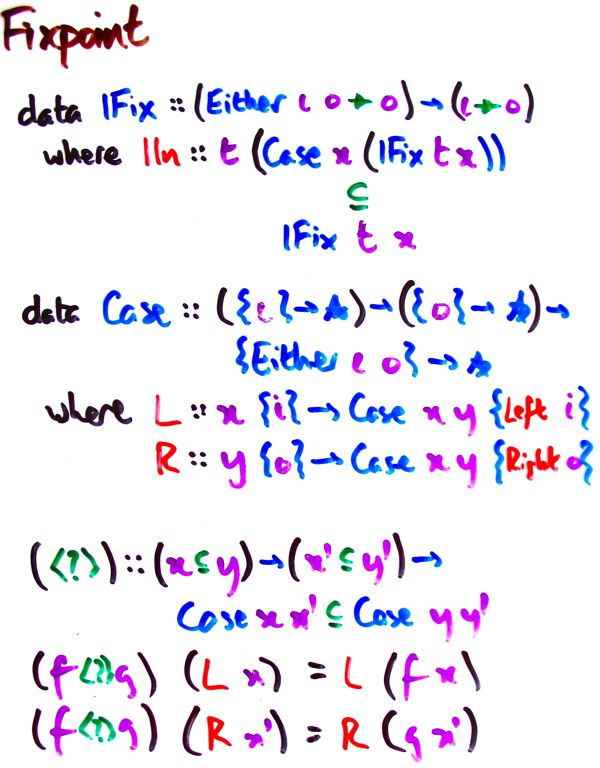 Fixpoint
data IFix :: (Either ι o ↠ o) → (ι ↠ o)
where IIn :: t (Case x (IFix t x))
⊆
IFix t x
data Case :: ({ι} → ★) → ({o} → ★) →
{Either ι o} → ★
where L :: x {i} → Case x y {Left i}
R :: y {o} → Case x y {Right o}
(<?>) :: (x ⊆ y) → (x' ⊆ y') →
Case x x' ⊆ Case y y'
(f <?> g) (L x) = L (f x)
(f <?> g) (R x') = R (g x')